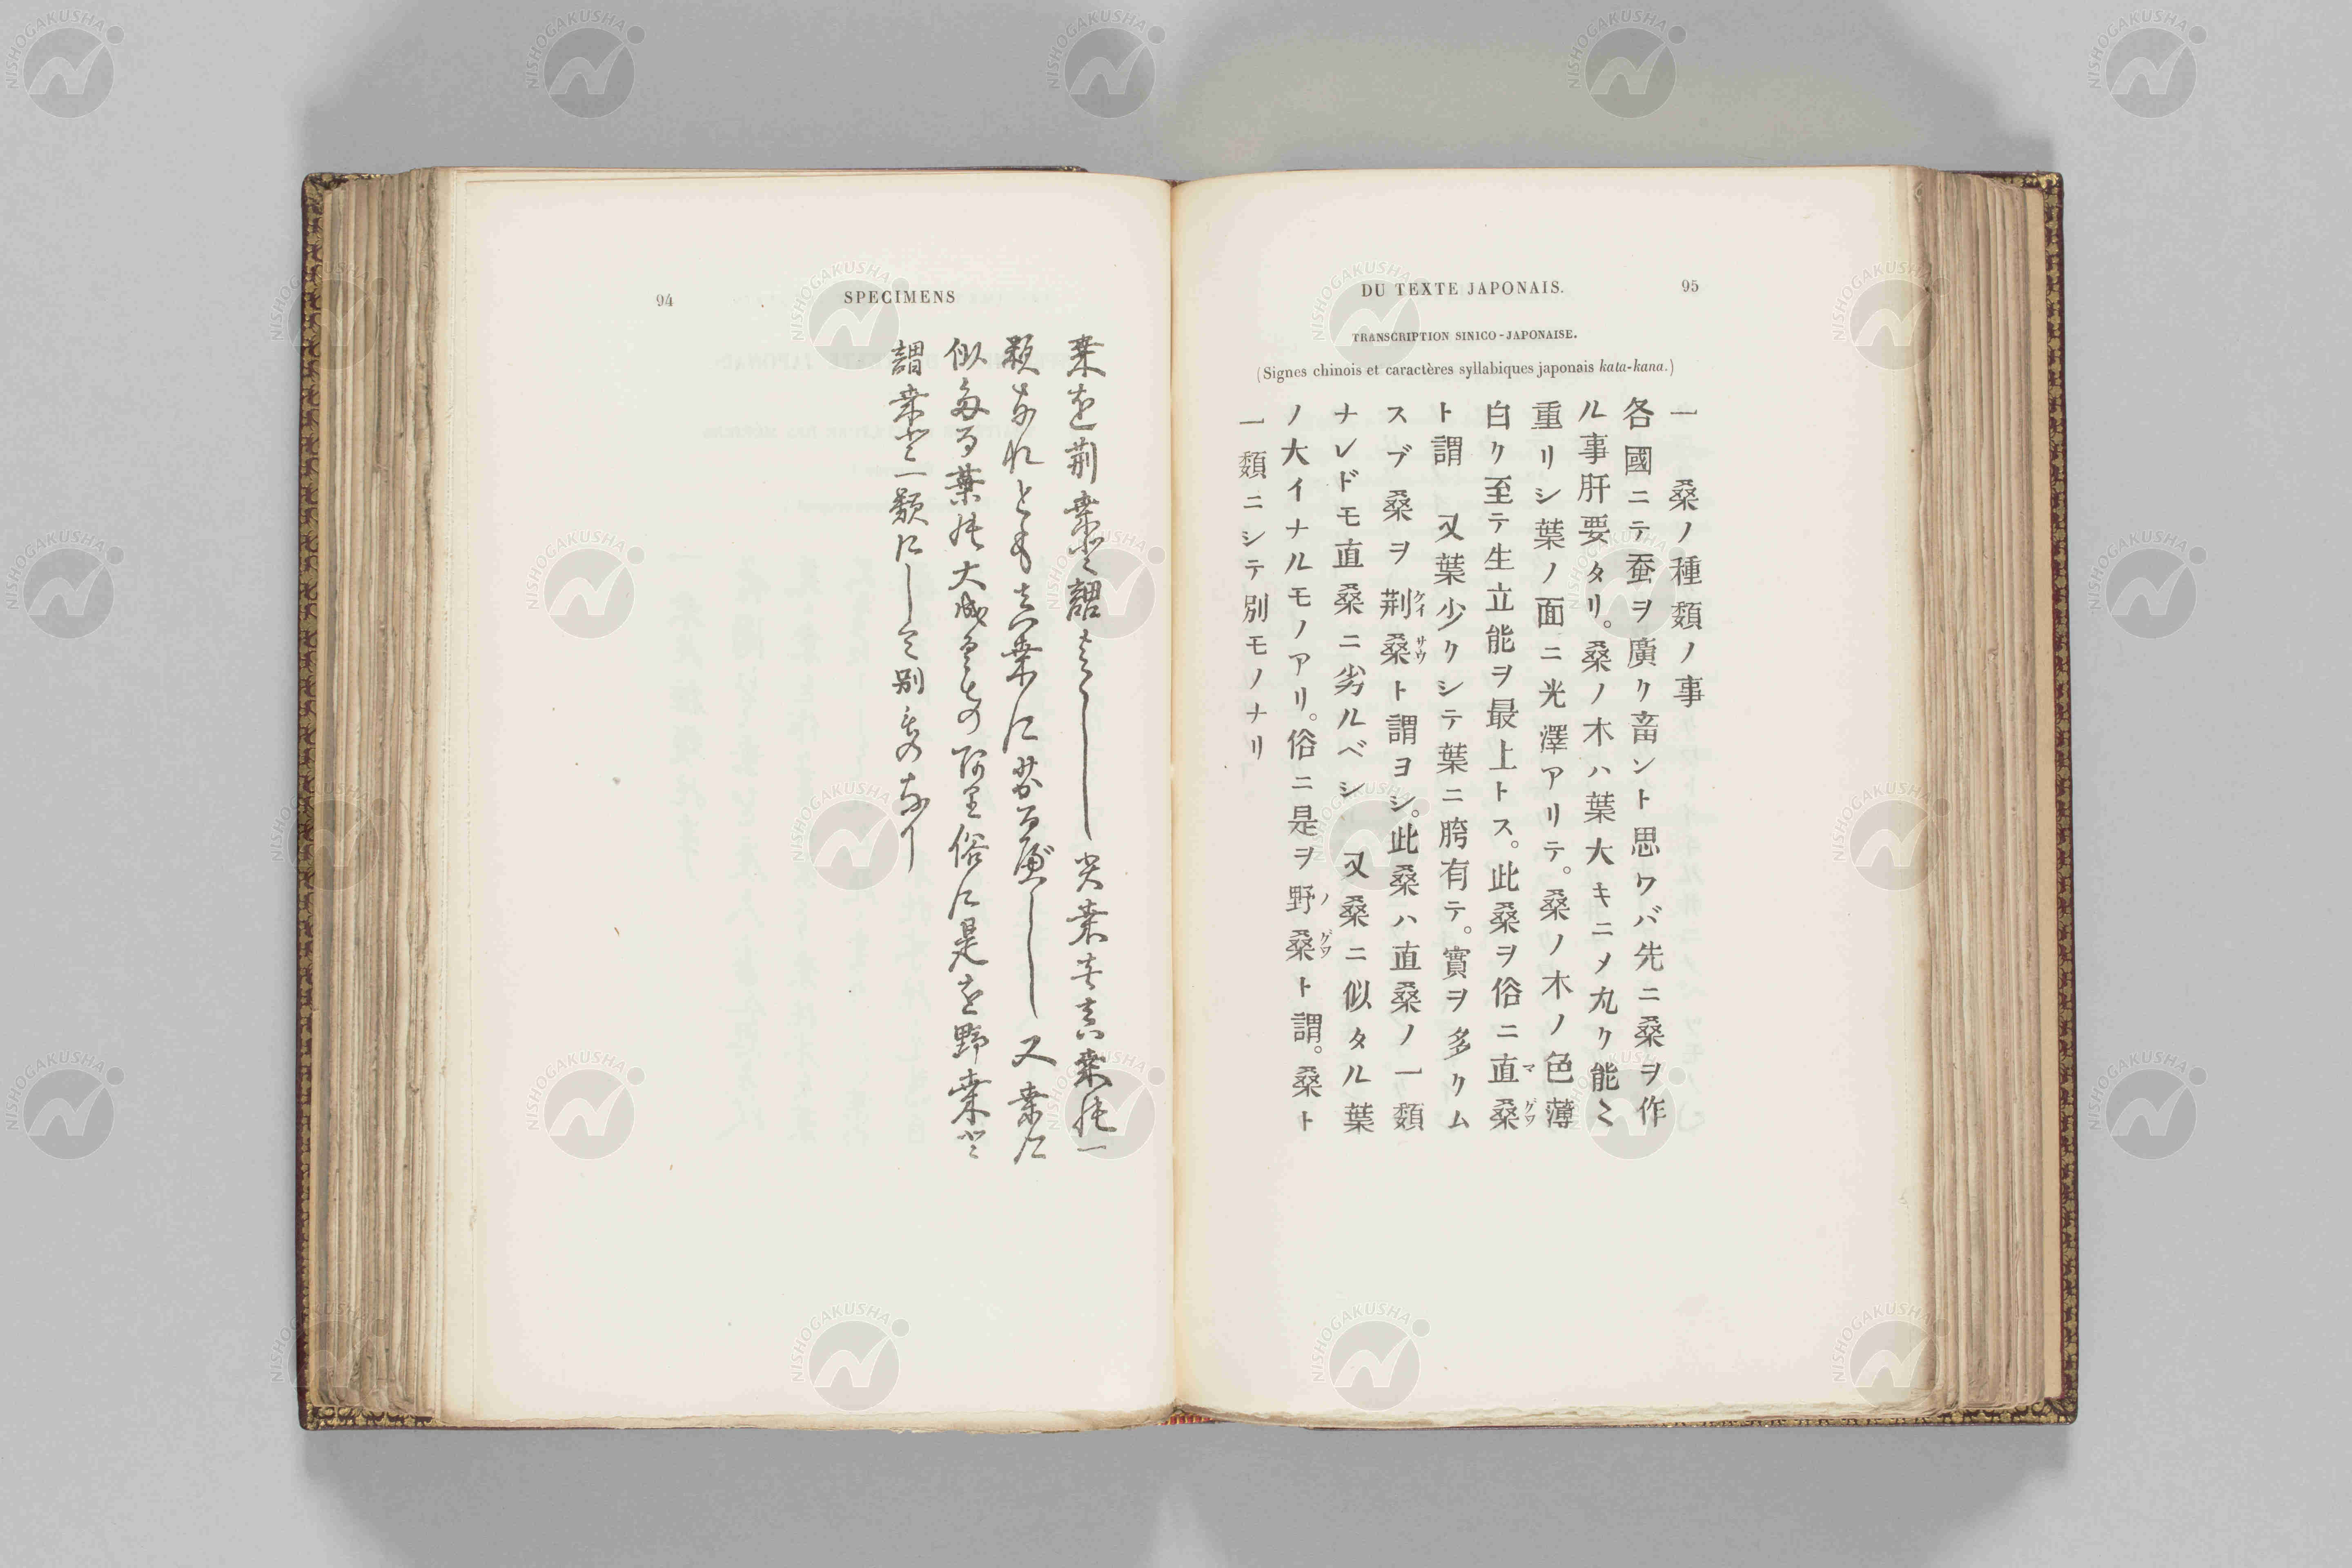 94
SPECIMENS
桑を荆桑と謂よし 此桑は真桑の一
類なれとも真桑に劣る べし 又桑に
似たる葉の大成るものあり俗に是を野桑と
謂桑と一類にして別ものなり
DU TEXTE JAPONAIS.
95
TRANSCRIPTION SINICO-JAPONAISE.
(Signes chinois et caractères syllabiques japonais kata-kana.)
一 桑ノ種類ノ事
各國ニテ蚕ヲ廣ク畜ント思ワバ先ニ桑ヲ作
ル事肝要タリ。桑ノ木ハ葉大キニメ丸ク能ミ
重リシ葉ノ面ニ光澤アリテ。桑ノ木ノ色薄
白ク至テ生立能ヲ最上トス。此桑ヲ俗ニ直桑
マグワ
ト謂 又葉少クシテ葉ニ胯有テ。實ヲ多クム
スブ桑ヲ荆桑ト謂ヨシ。此桑ハ直桑ノ一類
ケイサウ
ナレドモ直桑ニ劣ルベシ 又桑ニ似タル葉
ノ大イナルモノアリ。俗ニ是ヲ野桑ト謂。桑ト
ノグワ
一類ニシテ別モノナリ
NISHOGAKUSHA